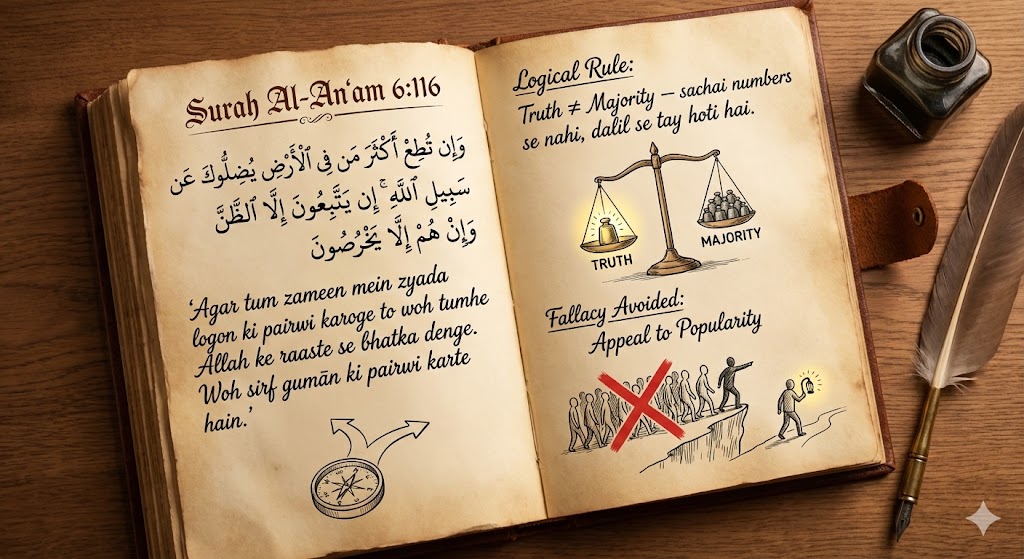 Surah Al-An'am 6:116
وَإِن تُطِعْ أَكْثَرَ مَن فِى ٱلْأَرْضِ يُضِلُّوكَ عَن
سَبِيلِ ٱللَّهِ ۚ إِن يَتَّبِعُونَ إِلَّا ٱلظَّنَّ
وَإِنْ هُمْ إِلَّا يَخْرُصُونَ
'Agar tum zameen mein zyada
logon ki pairwi karoge to woh tumhe
Allah ke raaste se bhatka denge.
Woh sirf gumān ki pairwi karte
hain.'
Logical Rule:
Truth ≠ Majority — sachai numbers
se nahi, dalil se tay hoti hai.
TRUTH
MAJORITY
Fallacy Avoided:
Appeal to Popularity